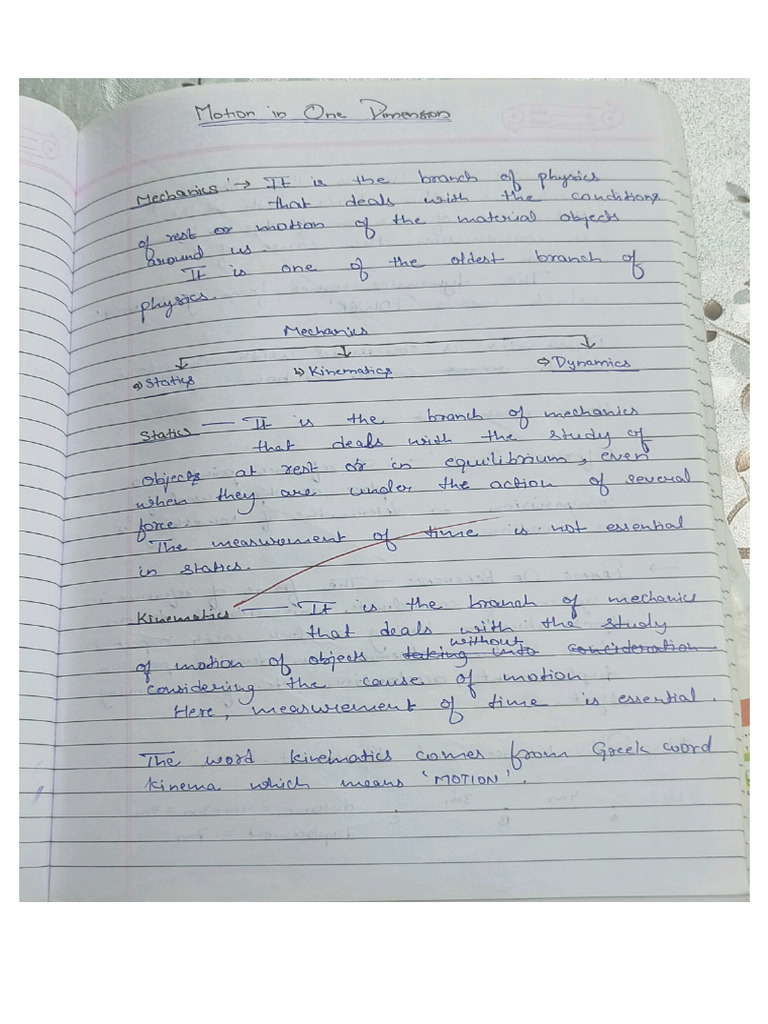 Motion in One Dimension
Mechanics :→ It is the branch of physics
that deals with the conditions
of rest or motion of the material objects
around us.
It is one of the oldest branch of
physics.
Mechanics
a) Statics b) Kinematics c) Dynamics
Statics — It is the branch of mechanics
that deals with the study of
objects at rest or in equilibrium, even
when they are under the action of several
force.
The measurement of time is not essential
in statics.
Kinematics — It is the branch of mechanics
that deals with the study
without
of motion of objects taking into consideration
considering the cause of motion
Here, measurement of time is essential.
The word kinematics comes from Greek word
kinema which means 'MOTION'.